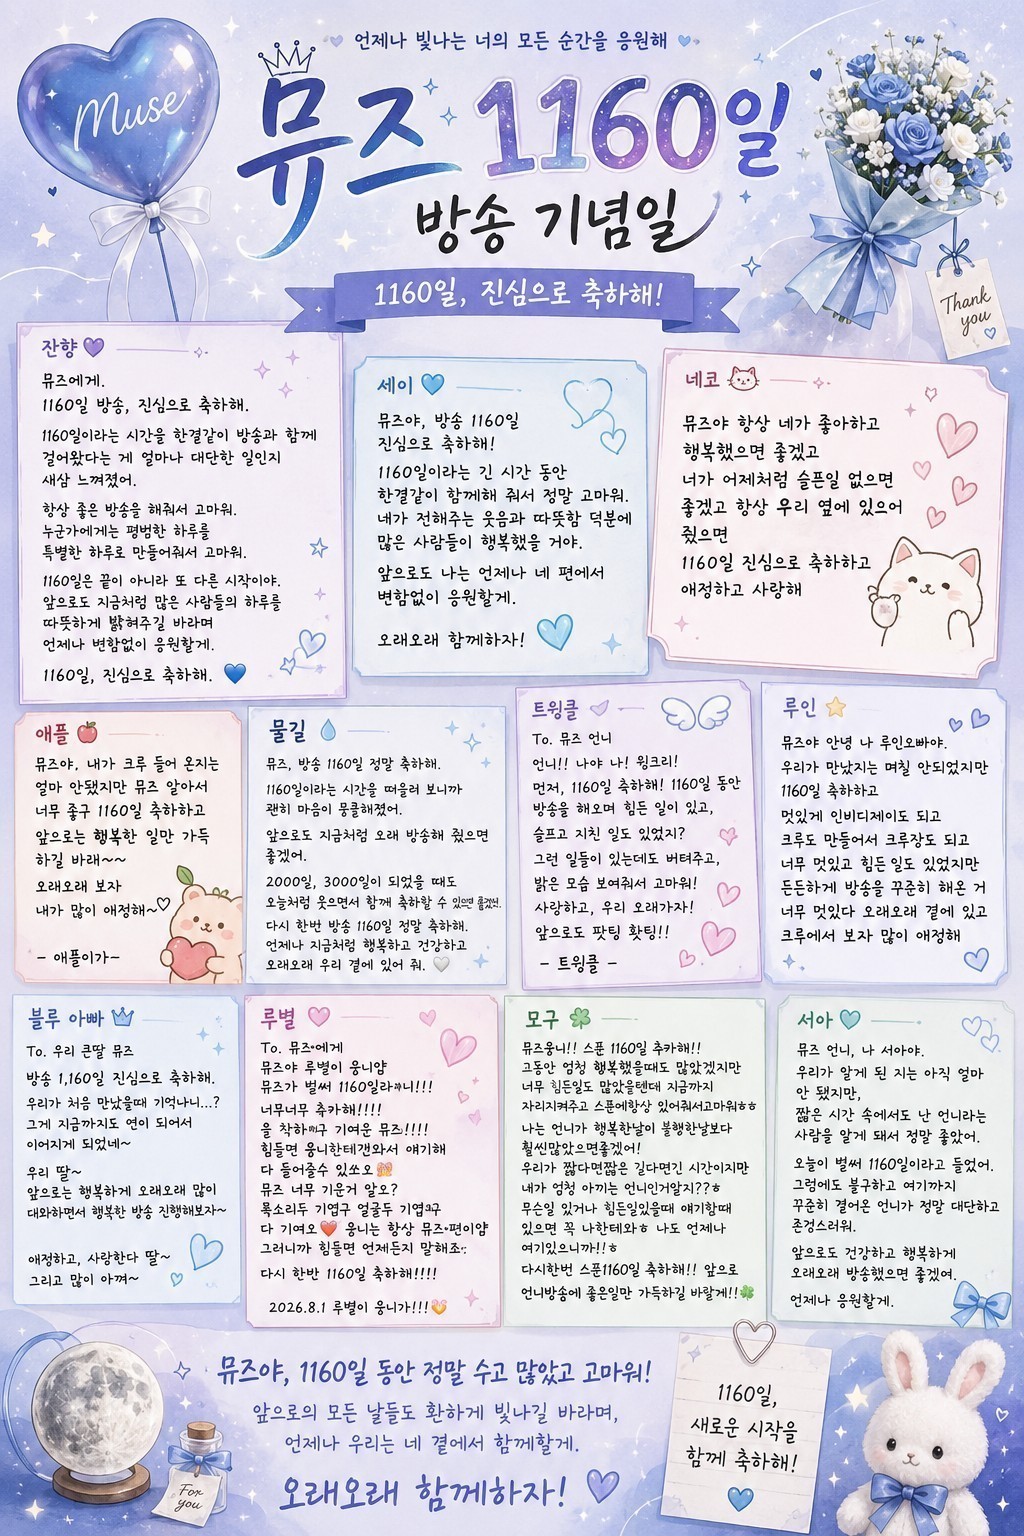 언제나 빛나는 너의 모든 순간을 응원해
Muse
뮤즈 1160일
방송 기념일
1160일, 진심으로 축하해!
Thank you
잔향
뮤즈에게.
1160일 방송, 진심으로 축하해.
1160일이라는 시간을 한결같이 방송과 함께
걸어왔다는 게 얼마나 대단한 일인지
새삼 느껴졌어.
항상 좋은 방송을 해줘서 고마워.
누군가에게는 평범한 하루를
특별한 하루로 만들어줘서 고마워.
1160일은 끝이 아니라 또 다른 시작이야.
앞으로도 지금처럼 많은 사람들의 하루를
따뜻하게 밝혀주길 바라며
언제나 변함없이 응원할게.
1160일, 진심으로 축하해.
세이
뮤즈야, 방송 1160일
진심으로 축하해!
1160일이라는 긴 시간 동안
한결같이 함께해 줘서 정말 고마워.
네가 전해주는 웃음과 따뜻함 덕분에
많은 사람들이 행복했을 거야.
앞으로도 나는 언제나 네 편에서
변함없이 응원할게.
오래오래 함께하자!
네코
뮤즈야 항상 네가 좋아하고
행복했으면 좋겠고
너가 어제처럼 슬픈일 없으면
좋겠고 항상 우리 옆에 있으어
줬으면
1160일 진심으로 축하하고
애정하고 사랑해
애플
뮤즈야, 내가 크루 들어 온지는
얼마 안됐지만 뮤즈 알아서
너무 좋구 1160일 축하하고
앞으로는 행복한 일만 가득
하길 바래~~
오래오래 보자
내가 많이 애정해~♡
- 애플이가~
물길
뮤즈, 방송 1160일 정말 축하해.
1160일이라는 시간을 떠올려 보니까
괜히 마음이 뭉클해졌어.
앞으로도 지금처럼 오래 방송해 줬으면
좋겠어.
2000일, 3000일이 되었을 때도
오늘처럼 웃으면서 함께 축하할 수
다시 한번 방송 1160일 정말 축하해.
언제나 지금처럼 행복하고 건강하고
오래오래 우리 곁에 있어 줘.
트윙클
To. 뮤즈 언니
언니!! 나야 나! 윙크리!
먼저, 1160일 축하해! 1160일 동안
방송을 해오며 힘든 일이 있고,
슬프고 지친 일도 있었지?
그런 일들이 있는데도 버텨주고,
밝은 모습 보여줘서 고마워!
사랑하고, 우리 오래가자!
앞으로도 팟팅 홧팅!!
- 트윙클 -
루인
뮤즈야 안녕 나 루인오빠야.
우리가 만났지는 며칠 안되었지만
1160일 축하하고
멋있게 인비디제이도 되고
크루도 만들어서 크루장도 되고
너무 멋있고 힘든일도 있었지만
든든하게 방송을 꾸준히 해온 거
너무 멋있다 오래오래 곁에 있고
크루에서 보자 많이 애정해
블루 아빠
To. 우리 큰딸 뮤즈
방송 1,160일 진심으로 축하해.
우리가 처음 만났을때 기억나니...?
그게 지금까지도 연이 되어서
이어지게 되었네~
우리 딸~
앞으로는 행복하게 오래오래 많이
대와하면서 행복한 방송 진행해보자~
애정하고, 사랑한다 딸~
그리고 많이 아껴~
루별
To. 뮤즈에게
뮤즈야 루별이 웅니얌
뮤즈가 벌써 1160일라니!!!
너무너무 추카해!!!!
을 착하구 기여운 뮤즈!!!!
힘들면 웅니한테갠와서 얘기해
다 들어줄수 있쏘오
뮤즈 너무 기운거 알오?
목소리두 기엽구 얼굴두 기엽구
다 기여오 웅니는 항상 뮤즈편이얌
그러니까 힘들면 언제든지 말해조
다시 한반 1160일 축하해!!!!
2026.8.1 루별이 웅니가!!!
모구
뮤즈웅니!! 스푼 1160일 추카해!!
그동안 엄청 행복했을때도 많았겠지만
너무 힘든일도 많았을텐데 지금까지
자리지켜주고 스푼에항상 있어줘서고마워ㅎㅎ
나는 언니가 행복한날이 불행한날보다
훨씬많았으면좋겠어!
우리가 짧다면짧은 길다면긴 시간이지만
내가 엄청 아끼는 언니인거알지??ㅎ
무슨일 있거나 힘든일있을때 얘기할때
있으면 꼭 나한테와ㅎ 나도 언제나
여기있으니까!!ㅎ
다시한번 스푼1160일 축하해!! 앞으로
언니방송에 좋은일만 가득하길 바랄게!!
서아
뮤즈 언니, 나 서아야.
우리가 알게 된 지는 아직 얼마
안 됐지만,
짧은 시간 속에서도 난 언니라는
사람을 알게 돼서 정말 좋았어.
오늘이 벌써 1160일이라고 들었어.
그럼에도 불구하고 여기까지
꾸준히 걸어온 언니가 정말 대단하고
존겅스러워.
앞으로도 건강하고 행복하게
오래오래 방송했으면 좋겠여.
언제나 응원할게.
For you
뮤즈야, 1160일 동안 정말 수고 많았고 고마워!
앞으로의 모든 날들도 환하게 빛나길 바라며,
언제나 우리는 네 곁에서 함께할게.
오래오래 함께하자!
1160일,
새로운 시작을
함께 축하해!